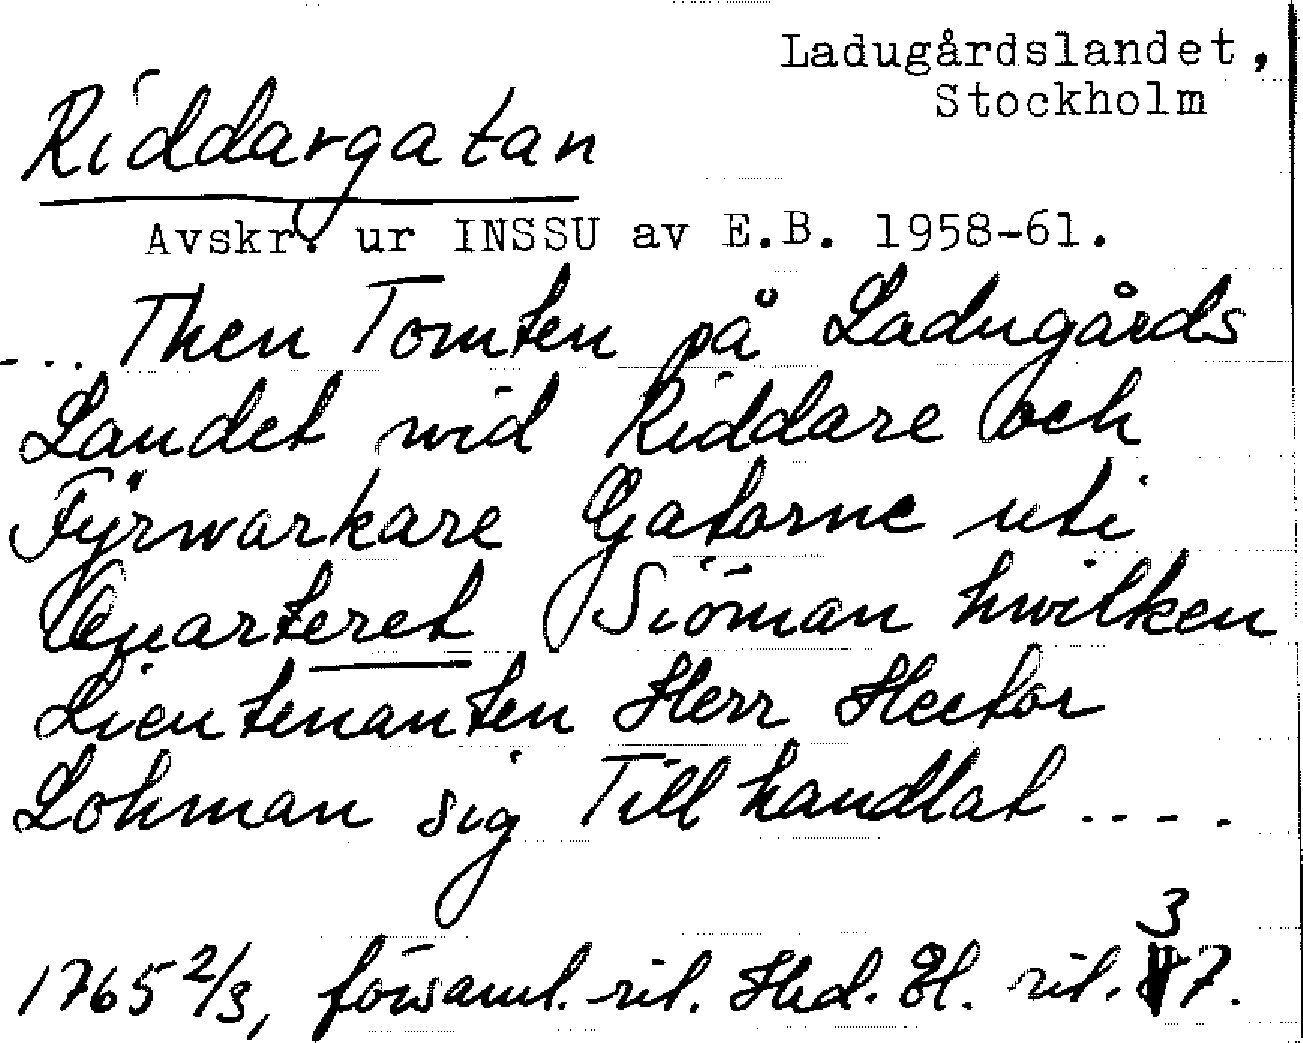 Ladugårdslandet,
Stockholm
Riddargatan
Avskr. ur INSSU av E.B. 1958-61.
... Then Tomten på Ladugårds
Landet wid Riddare och
Fÿrwarkare Gatorne uti
Quarteret Siöman hwilken
Lieutenanten Herr Hector
Lohman sig Till handlat ....
1765 2/3, församl. rit. Hed. El. rit. 37.